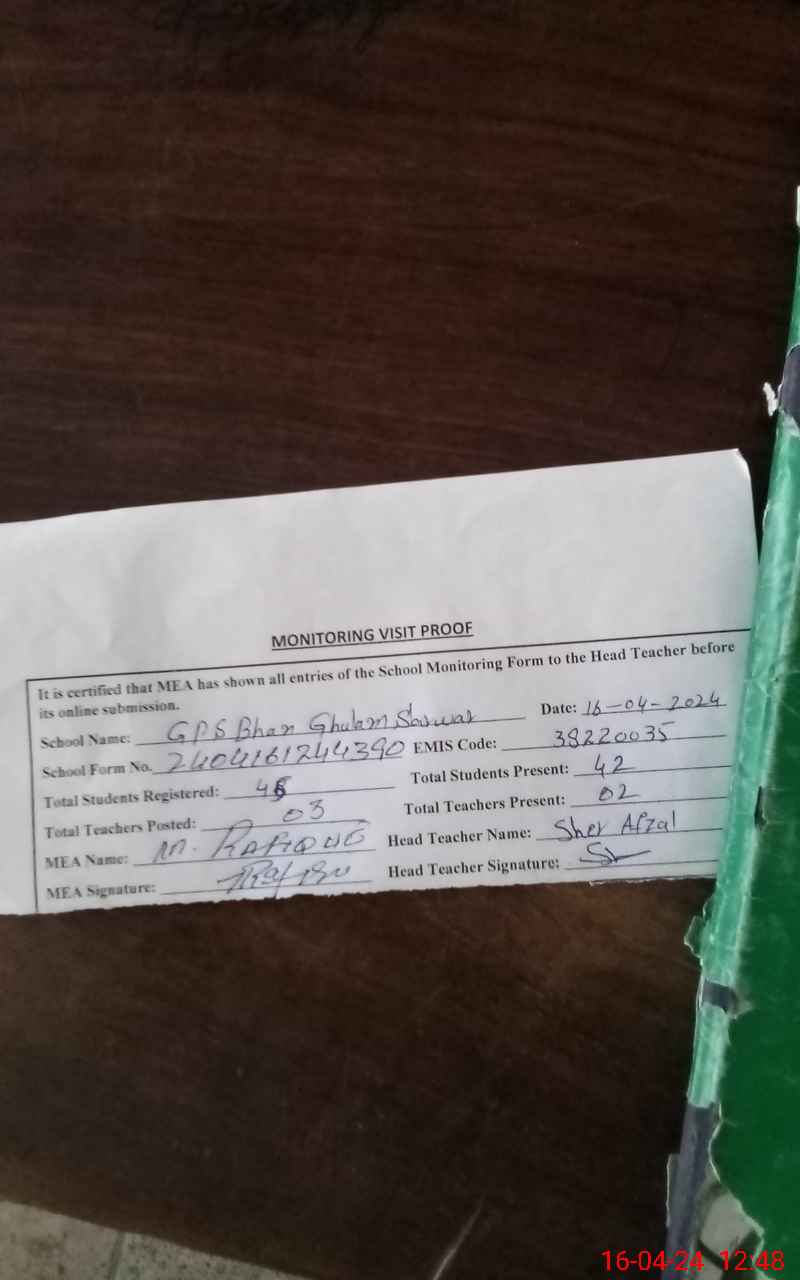 MONITORING VISIT PROOF
It is certified that MEA has shown all entries of the School Monitoring Form to the Head Teacher before
its online submission.
School Name: GPS Bhan Ghulam Sarwar Date: 16-04-2024
School Form No. 2404161244390 EMIS Code: 38220035
Total Students Registered: Total Students Present: 42
Total Teachers Posted: 03 Total Teachers Present: 02
MEA Name: M. RAFIQUE Head Teacher Name: Sher Afzal
MEA Signature: Head Teacher Signature:
16-04-24 12:48